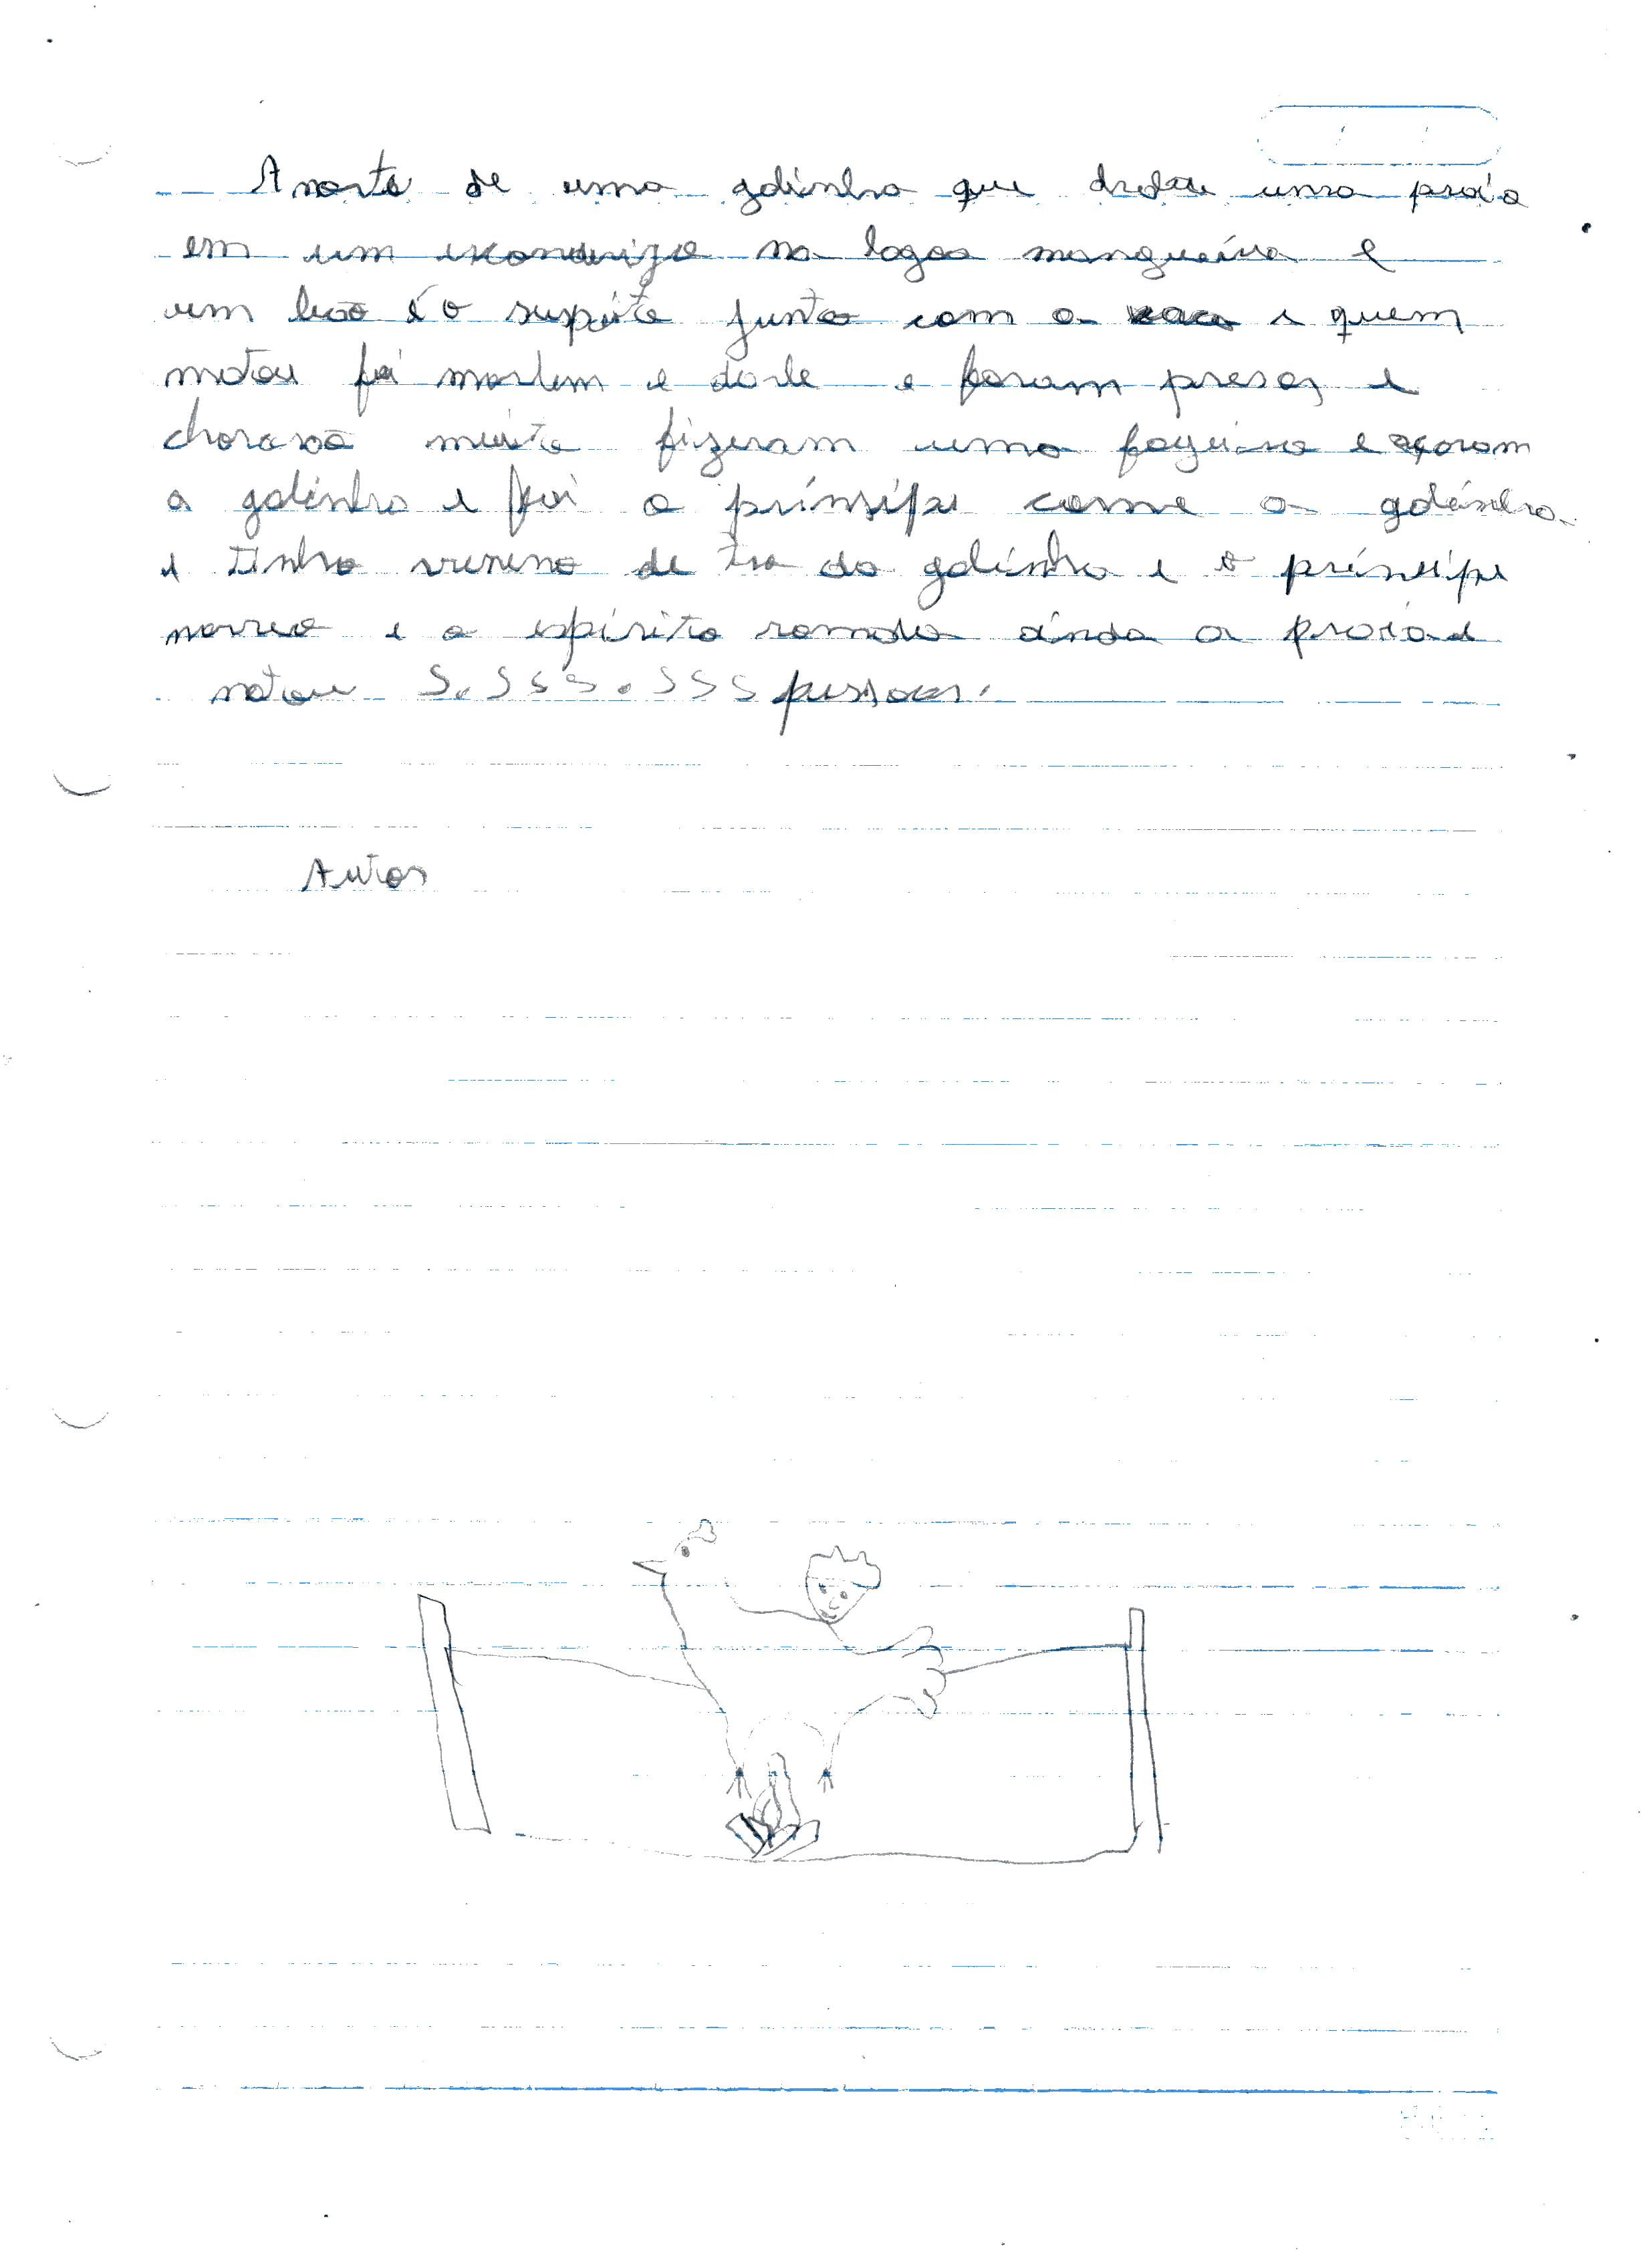 A morte de uma galinha que drobou uma praia
em um
na lagoa mangueira e
um leão é o supeito junto com a vaca e quem
matou foi marlem e darle e foram presos e
choravão muito fizeram uma fogueira e açoram
a galinha e foi o prínsipe come a galinha
e tinha veneno de tra da galinha e o príncipe
morreo e o espírito ainda a praia e
matou 5.555.555 pessoas.
Autor